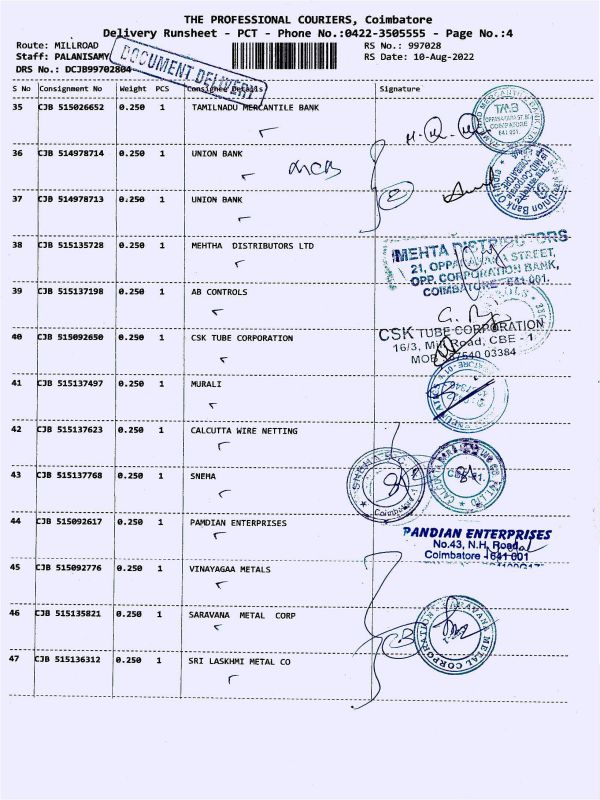 THE PROFESSIONAL COURIERS, Coimbatore
Delivery Runsheet - PCT - Phone No.:0422-3505555 - Page No.:4
Route: MILLROAD RS No.: 997028
Staff: PALANISAMY RS Date: 10-Aug-2022
DRS No.: DCJB99702804
DOCUMENT DELIVERY
S No Consignment No Weight PCS Consignee Details Signature
35 CJB 515026652 0.250 1 TAMILNADU MERCANTILE BANK
TMB
COIMBATORE
641 001.
36 CJB 514978714 0.250 1 UNION BANK
Union Bank Of India
37 CJB 514978713 0.250 1 UNION BANK
38 CJB 515135728 0.250 1 MEHTHA DISTRIBUTORS LTD
MEHTA DISTRIBUTORS
21, OPPANAKARA STREET,
OPP. CORPORATION BANK,
COIMBATORE - 641 001.
39 CJB 515137198 0.250 1 AB CONTROLS
40 CJB 515092650 0.250 1 CSK TUBE CORPORATION
CSK TUBE CORPORATION
16/3, Mill Road, CBE - 1
41 CJB 515137497 0.250 1 MURALI
42 CJB 515137623 0.250 1 CALCUTTA WIRE NETTING
43 CJB 515137768 0.250 1 SNEHA
44 CJB 515092617 0.250 1 PAMDIAN ENTERPRISES
PANDIAN ENTERPRISES
No.43, N.H. Road,
Coimbatore - 641 001
45 CJB 515092776 0.250 1 VINAYAGAA METALS
46 CJB 515135821 0.250 1 SARAVANA METAL CORP
SARAVANA METAL CORPORATION
47 CJB 515136312 0.250 1 SRI LASKHMI METAL CO